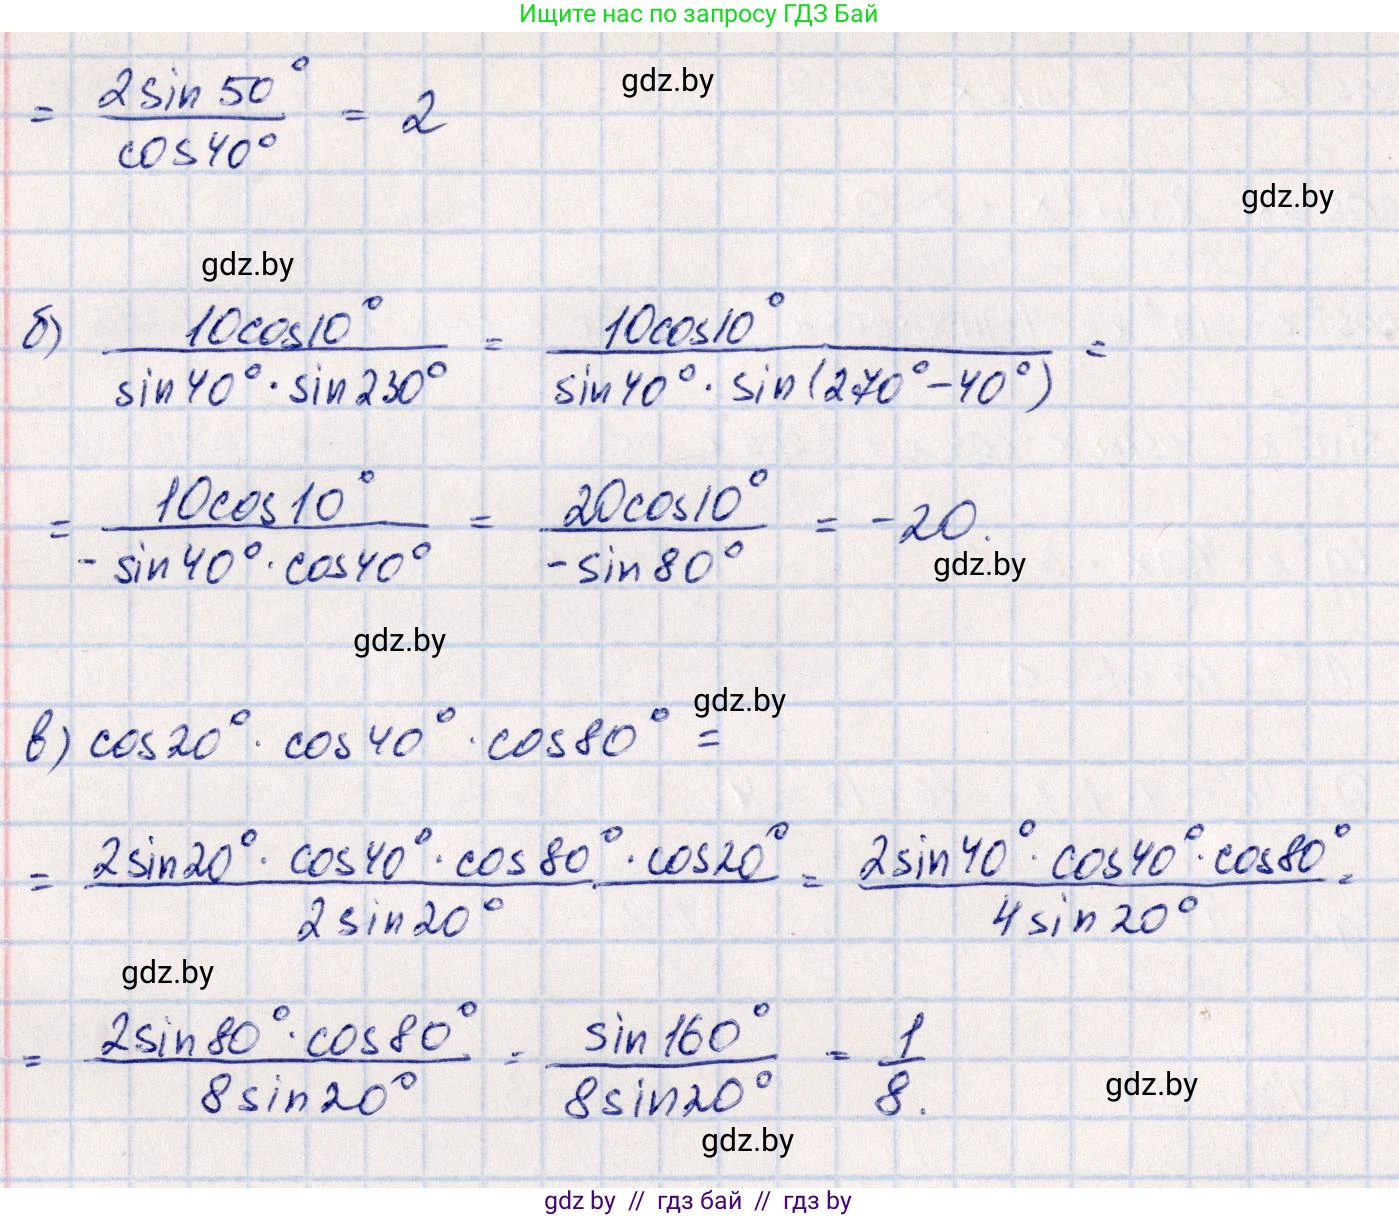 Ищите нас по запросу ГДЗ Бай
= 2sin 50° / cos40° = 2
gdz.by
gdz.by
gdz.by
б) 10cos10° / sin40°·sin230° = 10cos10° / sin40°·sin(270°-40°) =
= 10cos10° / -sin40°·cos40° = 20cos10° / -sin80° = -20.
gdz.by
gdz.by
gdz.by
в) cos20°·cos40°·cos80° =
= 2sin20°·cos40°·cos80°·cos20° / 2sin20° = 2sin40°·cos40°·cos80° / 4sin20° =
gdz.by
= 2sin80°·cos80° / 8sin20° = sin160° / 8sin20° = 1/8.
gdz.by
gdz.by
gdz by // гдз бай // гдз by